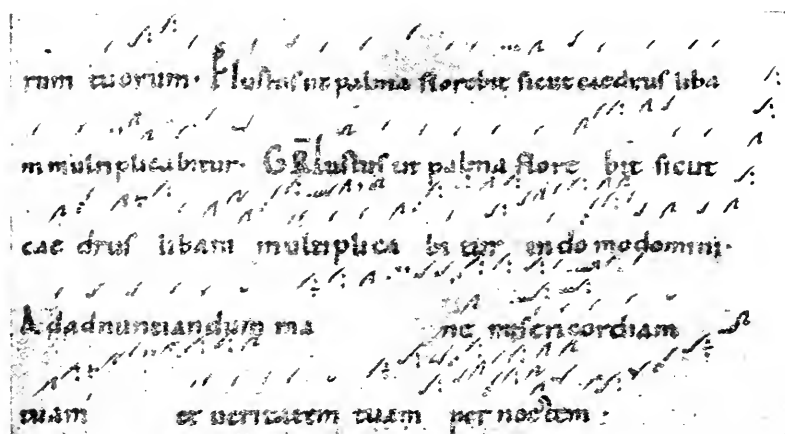 rum tuorum. Ps Iustus ut palma florebit sicut caedrus liba
ni multiplicabitur. GR Iustus ut palma flore bit sicut
cae drus libani multiplica bi tur in do mo domini.
Ad adnuntiandum ma ne misericordiam
tuam et ueritatem tuam per noctem.